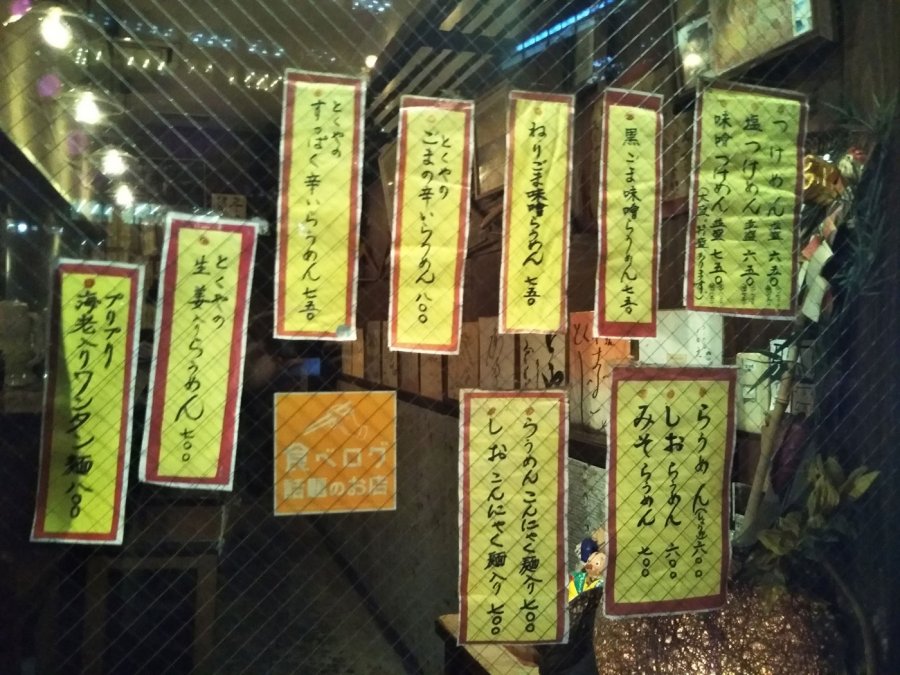 つけめん 並盛 六五〇
塩つけめん 並盛 六五〇
味噌つけめん 並盛 七五〇
黒ごま味噌らぅめん 七五〇
ねりごま味噌らぅめん 七五〇
とくやの
ごまの辛いらぅめん 八〇〇
とくやの
すっぱく辛いらぅめん 七五〇
とくやの
生姜入りらぅめん 七〇〇
プリプリ
海老入りワンタン麺 八〇〇
らぅめん 六〇〇
しおらぅめん 六〇〇
みそらぅめん 七〇〇
らぅめんこんにゃく麺入り 七〇〇
しおこんにゃく麺入り 七〇〇
食べログ
話題のお店